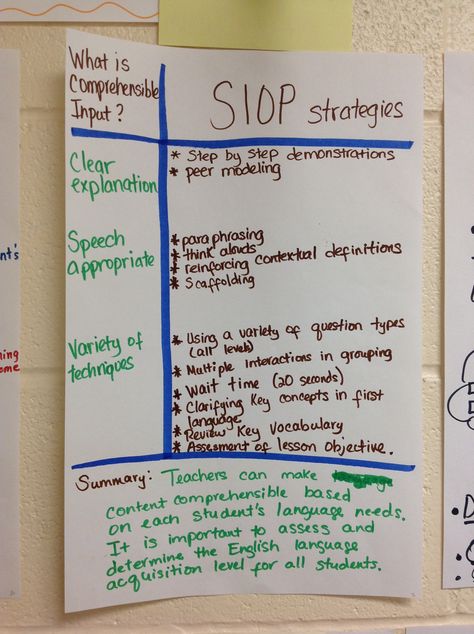 What is
Comprehensible
Input?
SIOP strategies
Clear
explanation
* Step by step demonstrations
* peer modeling
Speech
appropriate
* paraphrasing
* think alouds
* reinforcing contextual definitions
* Scaffolding
Variety of
techniques
* Using a variety of question types
(all levels)
* Multiple interactions in grouping
* Wait time (20 seconds)
* Clarifying key concepts in first
language.
* Review Key Vocabulary
* Assessment of lesson objective.
Summary: Teachers can make
content comprehensible based
on each student's language needs.
It is important to assess and
determine the English language
acquisition level for all students.